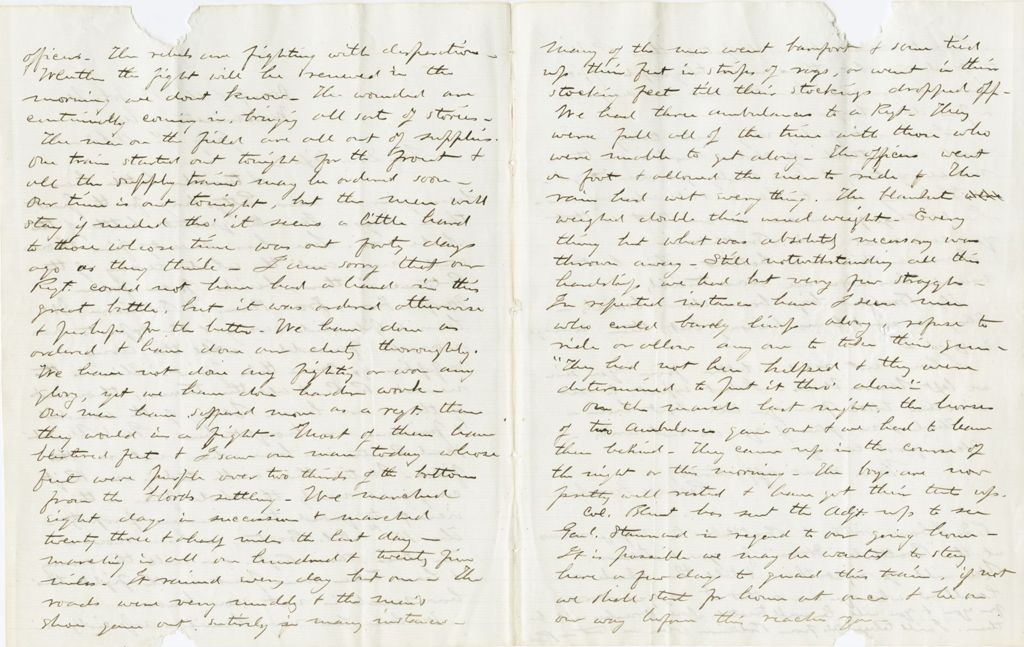 officers. The rebels are fighting with desperation -
Whether the fight will be renewed in the
morning we dont know. The wounded are
continually coming in, bringing all sort of stories -
The men on the field are all out of supplies.
One train started out tonight for the front &
all the supply trains may be ordered soon -
Our time is out tonight, but the men will
stay if needed tho' it seems a little hard
to those whose time was out forty days
ago as they think - I am sorry that our
Regt could not have had a hand in this
great battle, but it was ordered otherwise
& perhaps for the better. We have done as
ordered & have done our duty thoroughly.
We have not done any fighting or won any
glory, yet we have done harder work -
Our men have suffered more as a regt than
they would in a fight - Most of them have
blistered feet & I saw one man today whose
feet were purple over two thirds of the bottom
from the blood settling - We marched
eight days in succession & marched
twenty three & a half miles the last day -
making in all one hundred & twenty five
miles. It rained every day but one - The
roads were very muddy & the men's
shoes gave out entirely in many instances -
Many of the men went barefoot & some tied
up their feet in strips of rags, or went in their
stockin feet till their stockings dropped off -
We had three ambulances to a Regt. They
were full all of the time with those who
were unable to get along - The officers went
on foot & allowed the men to ride & The
rain had wet everything. The blankets
weighed double their usual weight. Every
thing but what was absolutely necessary was
thrown away - Still notwithstanding all this
hardship we had but very few stragglers
In repeated instances have I seen men
who could barely limp along, refuse to
ride or allow any one to take their gun -
"They had not been helped & they were
determined to put it thro' alone"
On the march last night, the horses
of two ambulances gave out & we had to leave
them behind - They came up in the course of
the night or this morning - The boys are now
pretty well rested & have got their tents up.
Col. Blunt has sent the Adjt up to see
Genl. Stannard in regard to our going home -
It is possible we may be wanted to stay
here a few days to guard this train, if not
we shall start for home at once & be on
our way before this reaches you